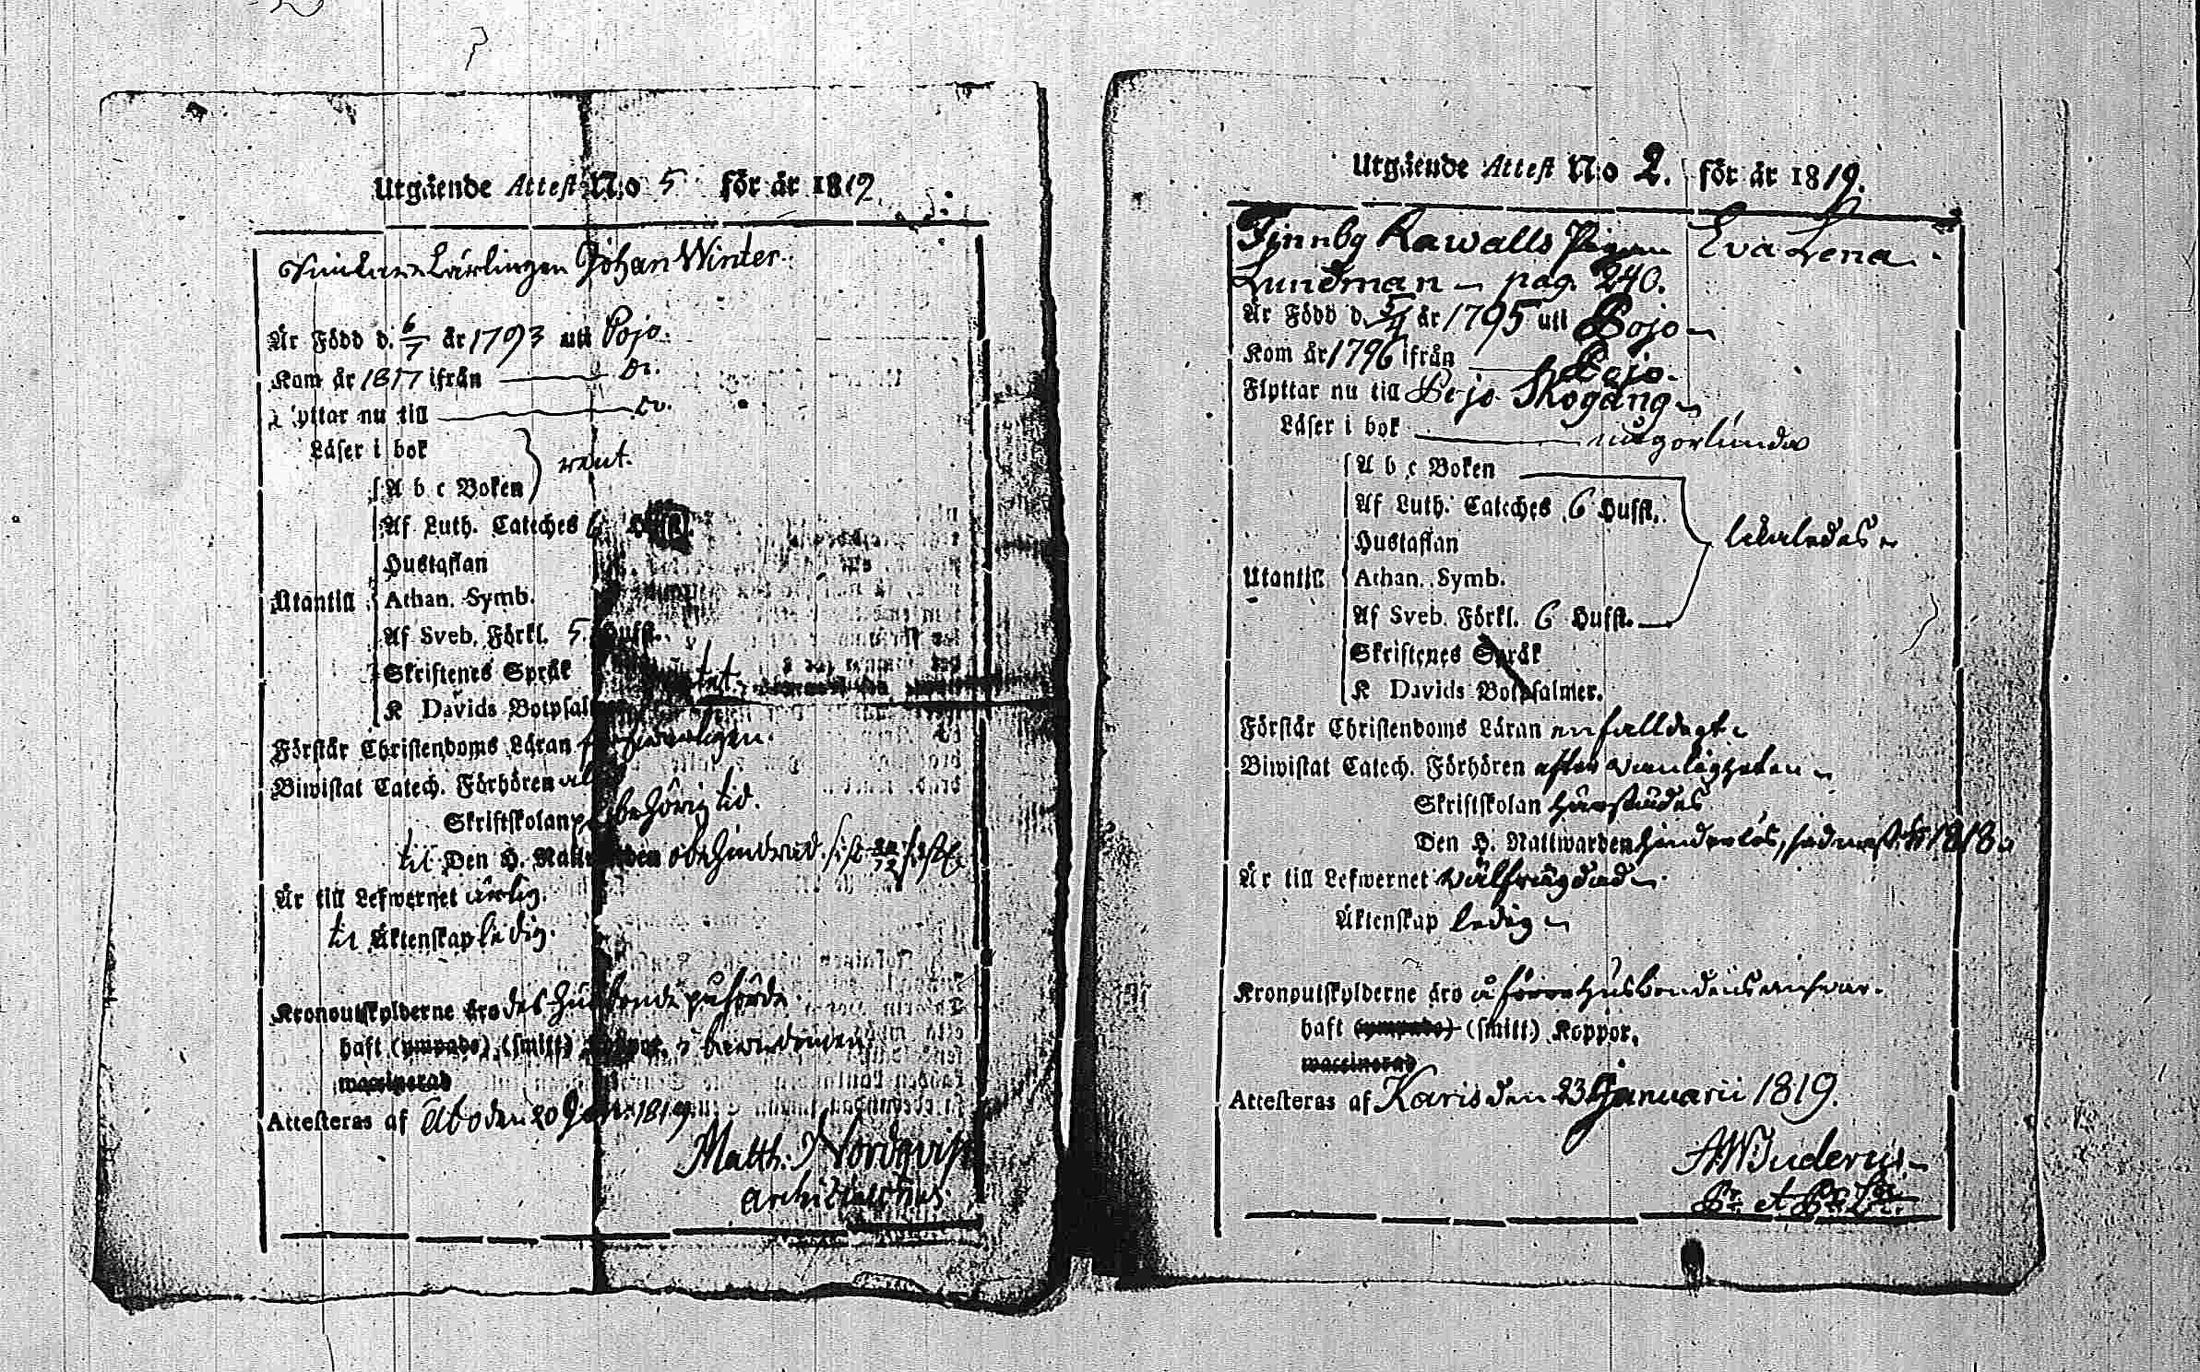 Utgående Attest N:o 5 för år 1819
Lärlingen Johan Winter.
Är Född d. 6/7 år 1793 uti Pojo.
Kom år 1817 ifrån Do.
Flyttar nu till Do.
Läser i bok
rent.
A b c Boken
Af Luth. Cateches 6
Hustaflan
Utantill Athan. Symb.
Af Sveb. Förkl. 5 Hufst.
Skriftenes Språk
K Davids Botpsal
Förstår Christendoms Läran
Biwistat Catech. Förhören
Skriftskolan på behörig tid.
til Den H. Nattwarden obehindrad
Är till Lefwernet ärlig.
til Äktenskap ledig.
Kronoutskylderne äro des påförde
haft (ympade) (smitt) Koppor.
waccinerad
Attesteras af Åbo den 20 Jan: 1819
Matth. Nordqvist
Utgående Attest N:o 2. för år 1819.
Finnby Rawalls Pigan Eva Lena
Lundman pag. 240.
Är Född d. 5/4 år 1795 uti Pojo
Kom år 1796 ifrån Pojo.
Flyttar nu till Pojo Skogäng
Läser i bok någorlunda
A b c Boken
Af Luth. Cateches 6 Hufst.
likaledes
Hustaflan
Utantill Athan. Symb.
Af Sveb. Förkl. 6 Hufst.
Skriftenes Språk
K Davids Botpsalmer.
Förstår Christendoms Läran enfalldigt
Biwistat Catech. Förhören efter vanligheten
Skriftskolan härstädes
Den H. Nattwarden hinderlös, sednast 1818
Är till Lefwernet välfrägdad
Äktenskap ledig
Kronoutskylderne äro å förra Husbondens ansvar.
haft (ympade) (smitt) Koppor.
waccinerad
Attesteras af Karis den 23 Januarii 1819.